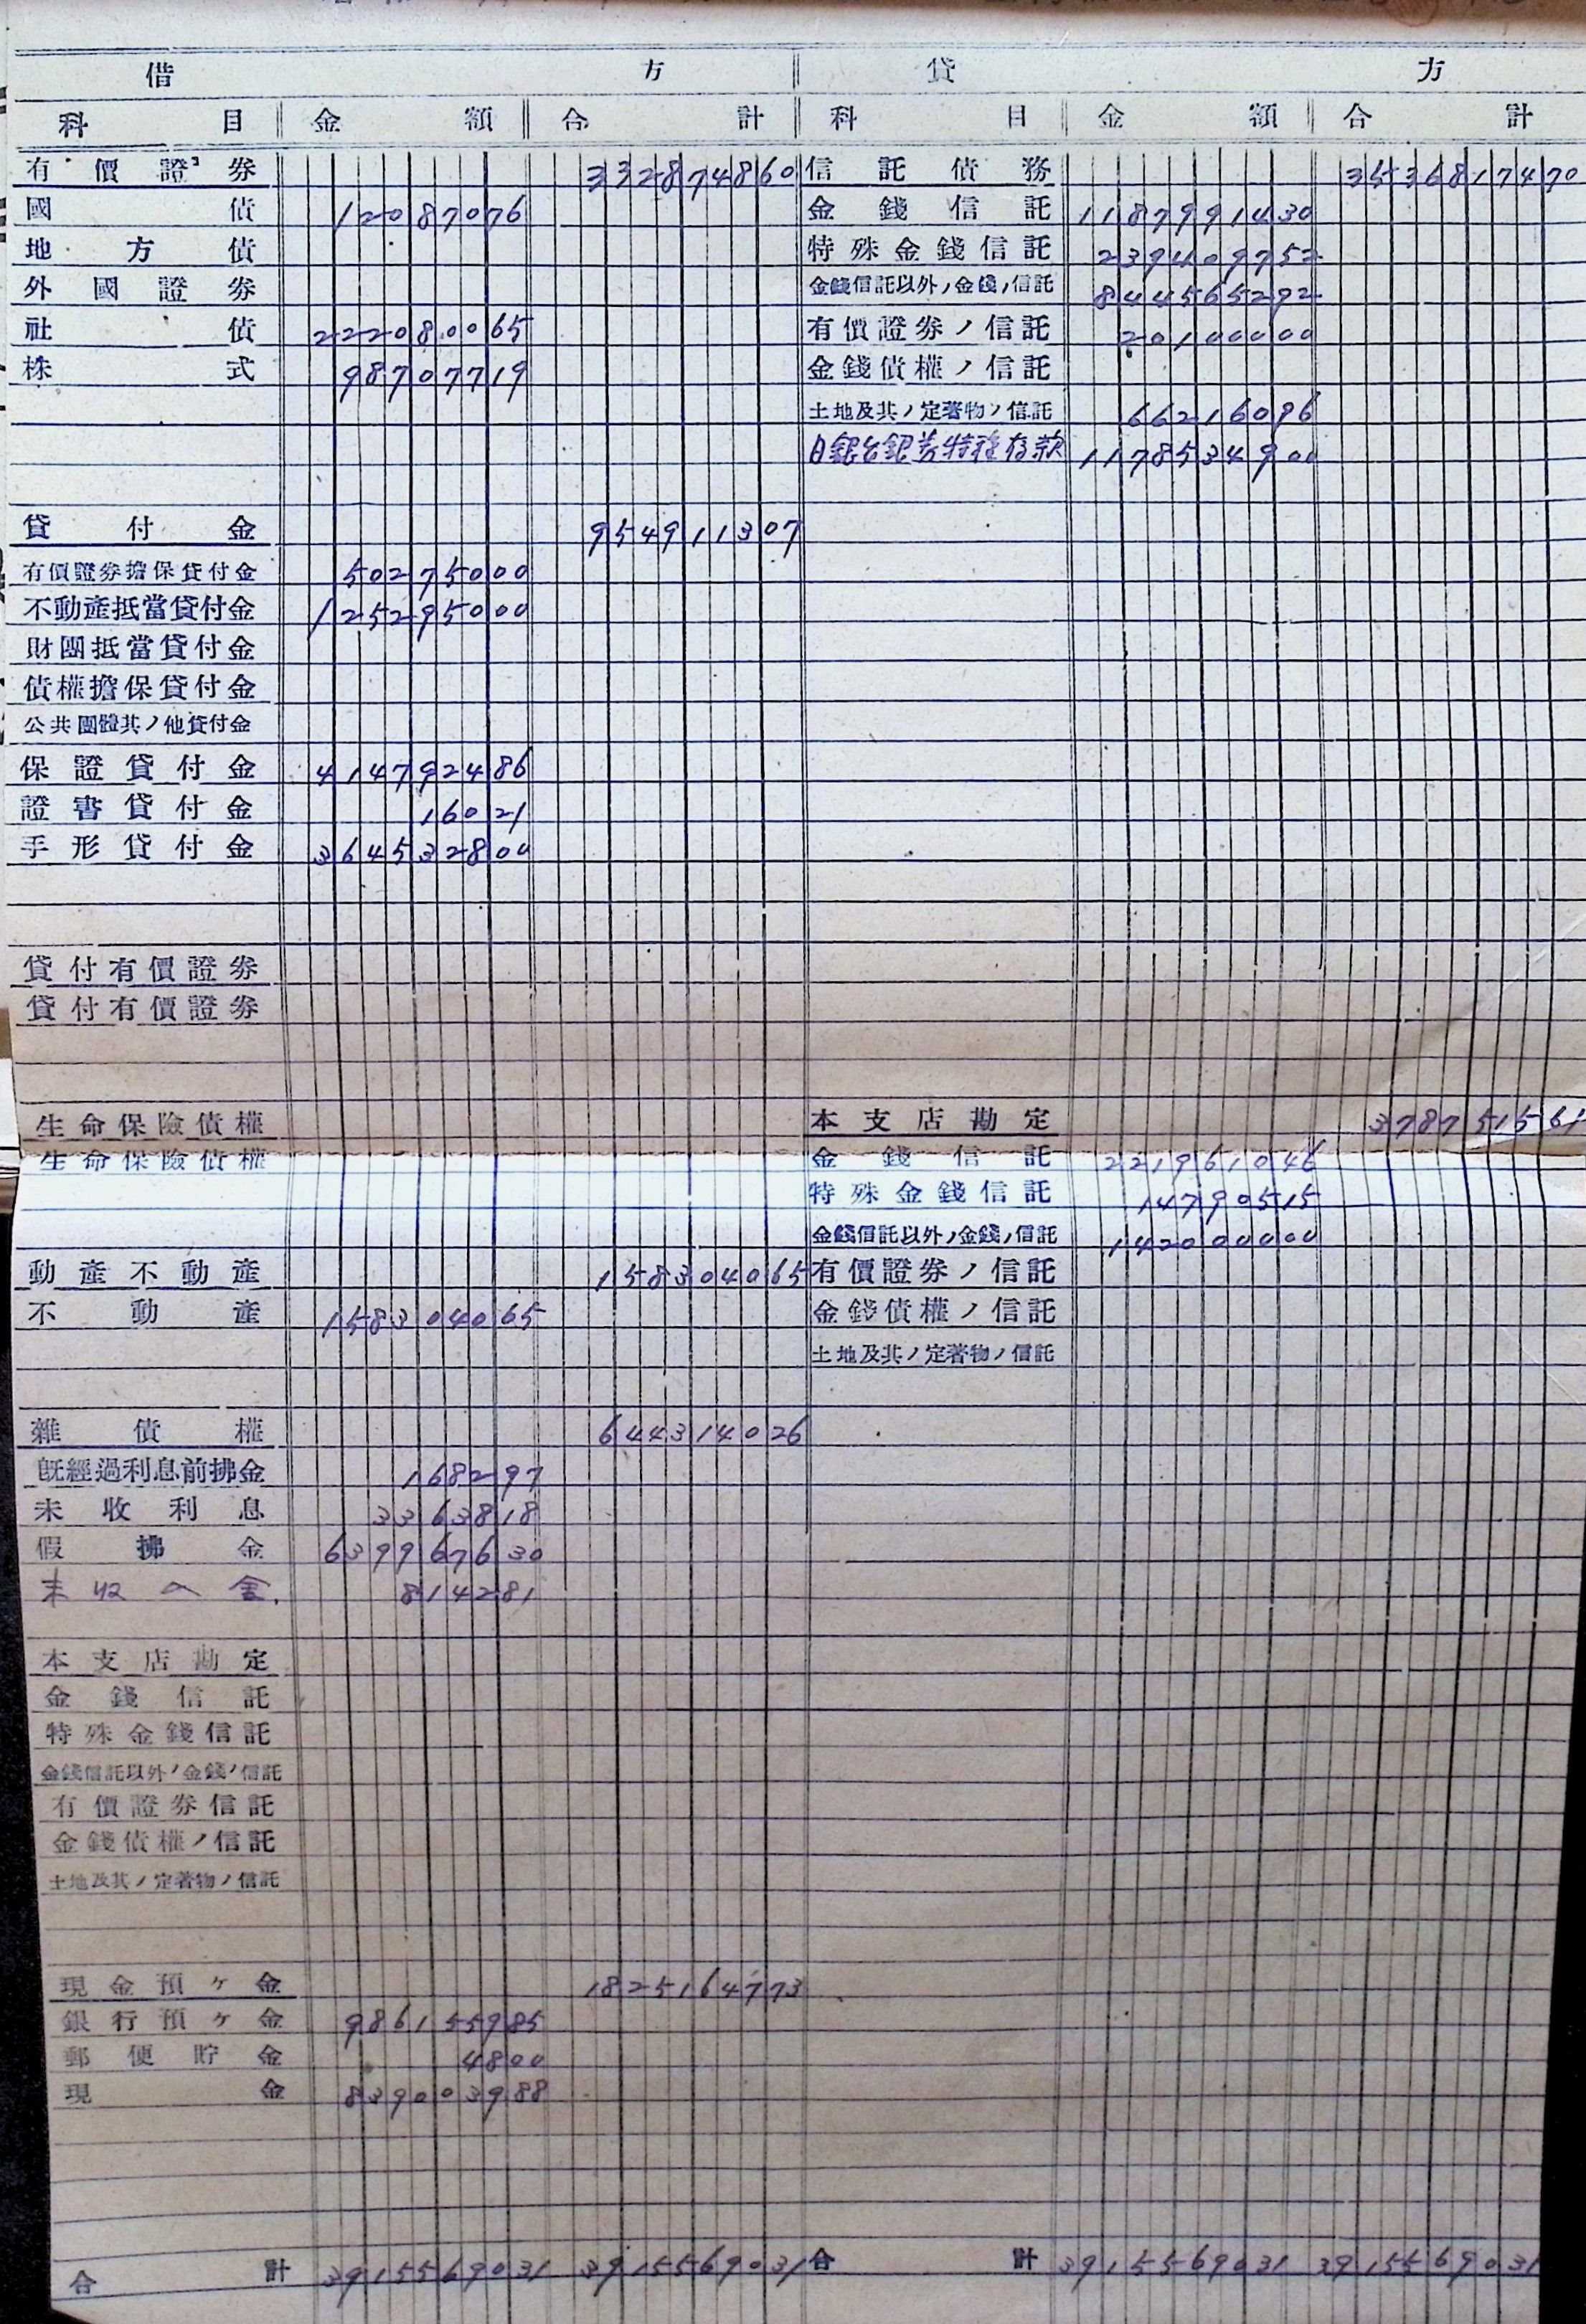 借 方 貸 方
科 目 金 額 合 計 科 目 金 額 合 計
有價證券 332874860 信託債務 3536817470
國債 12087076 金錢信託 1187991430
地方債 特殊金錢信託 239409752
外國證券 金錢信託以外ノ金錢ノ信託 844565292
社債 222080065 有價證券ノ信託 20100000
株式 98707719 金錢債權ノ信託
土地及其ノ定著物ノ信託 66216096
日銀台銀券特種存款 1178534900
貸付金 954911307
有價證券擔保貸付金 50275000
不動產抵當貸付金 125295000
財團抵當貸付金
債權擔保貸付金
公共團體其ノ他貸付金
保證貸付金 414792486
證書貸付金 16021
手形貸付金 364532800
貸付有價證券
貸付有價證券
生命保險債權 本支店勘定 378751561
生命保險債權 金錢信託 221961046
特殊金錢信託 14790515
金錢信託以外ノ金錢ノ信託 142000000
動產不動產 158304065 有價證券ノ信託
不動產 158304065 金錢債權ノ信託
土地及其ノ定著物ノ信託
雜債權 644314026
既經過利息前拂金 168297
未收利息 3363818
假拂金 639967630
未收入金 814281
本支店勘定
金錢信託
特殊金錢信託
金錢信託以外ノ金錢ノ信託
有價證券信託
金錢債權ノ信託
土地及其ノ定著物ノ信託
現金預ケ金 1825164773
銀行預ケ金 986155985
郵便貯金 4800
現金 839003988
合計 3915569031 3915569031 合計 3915569031 3915569031